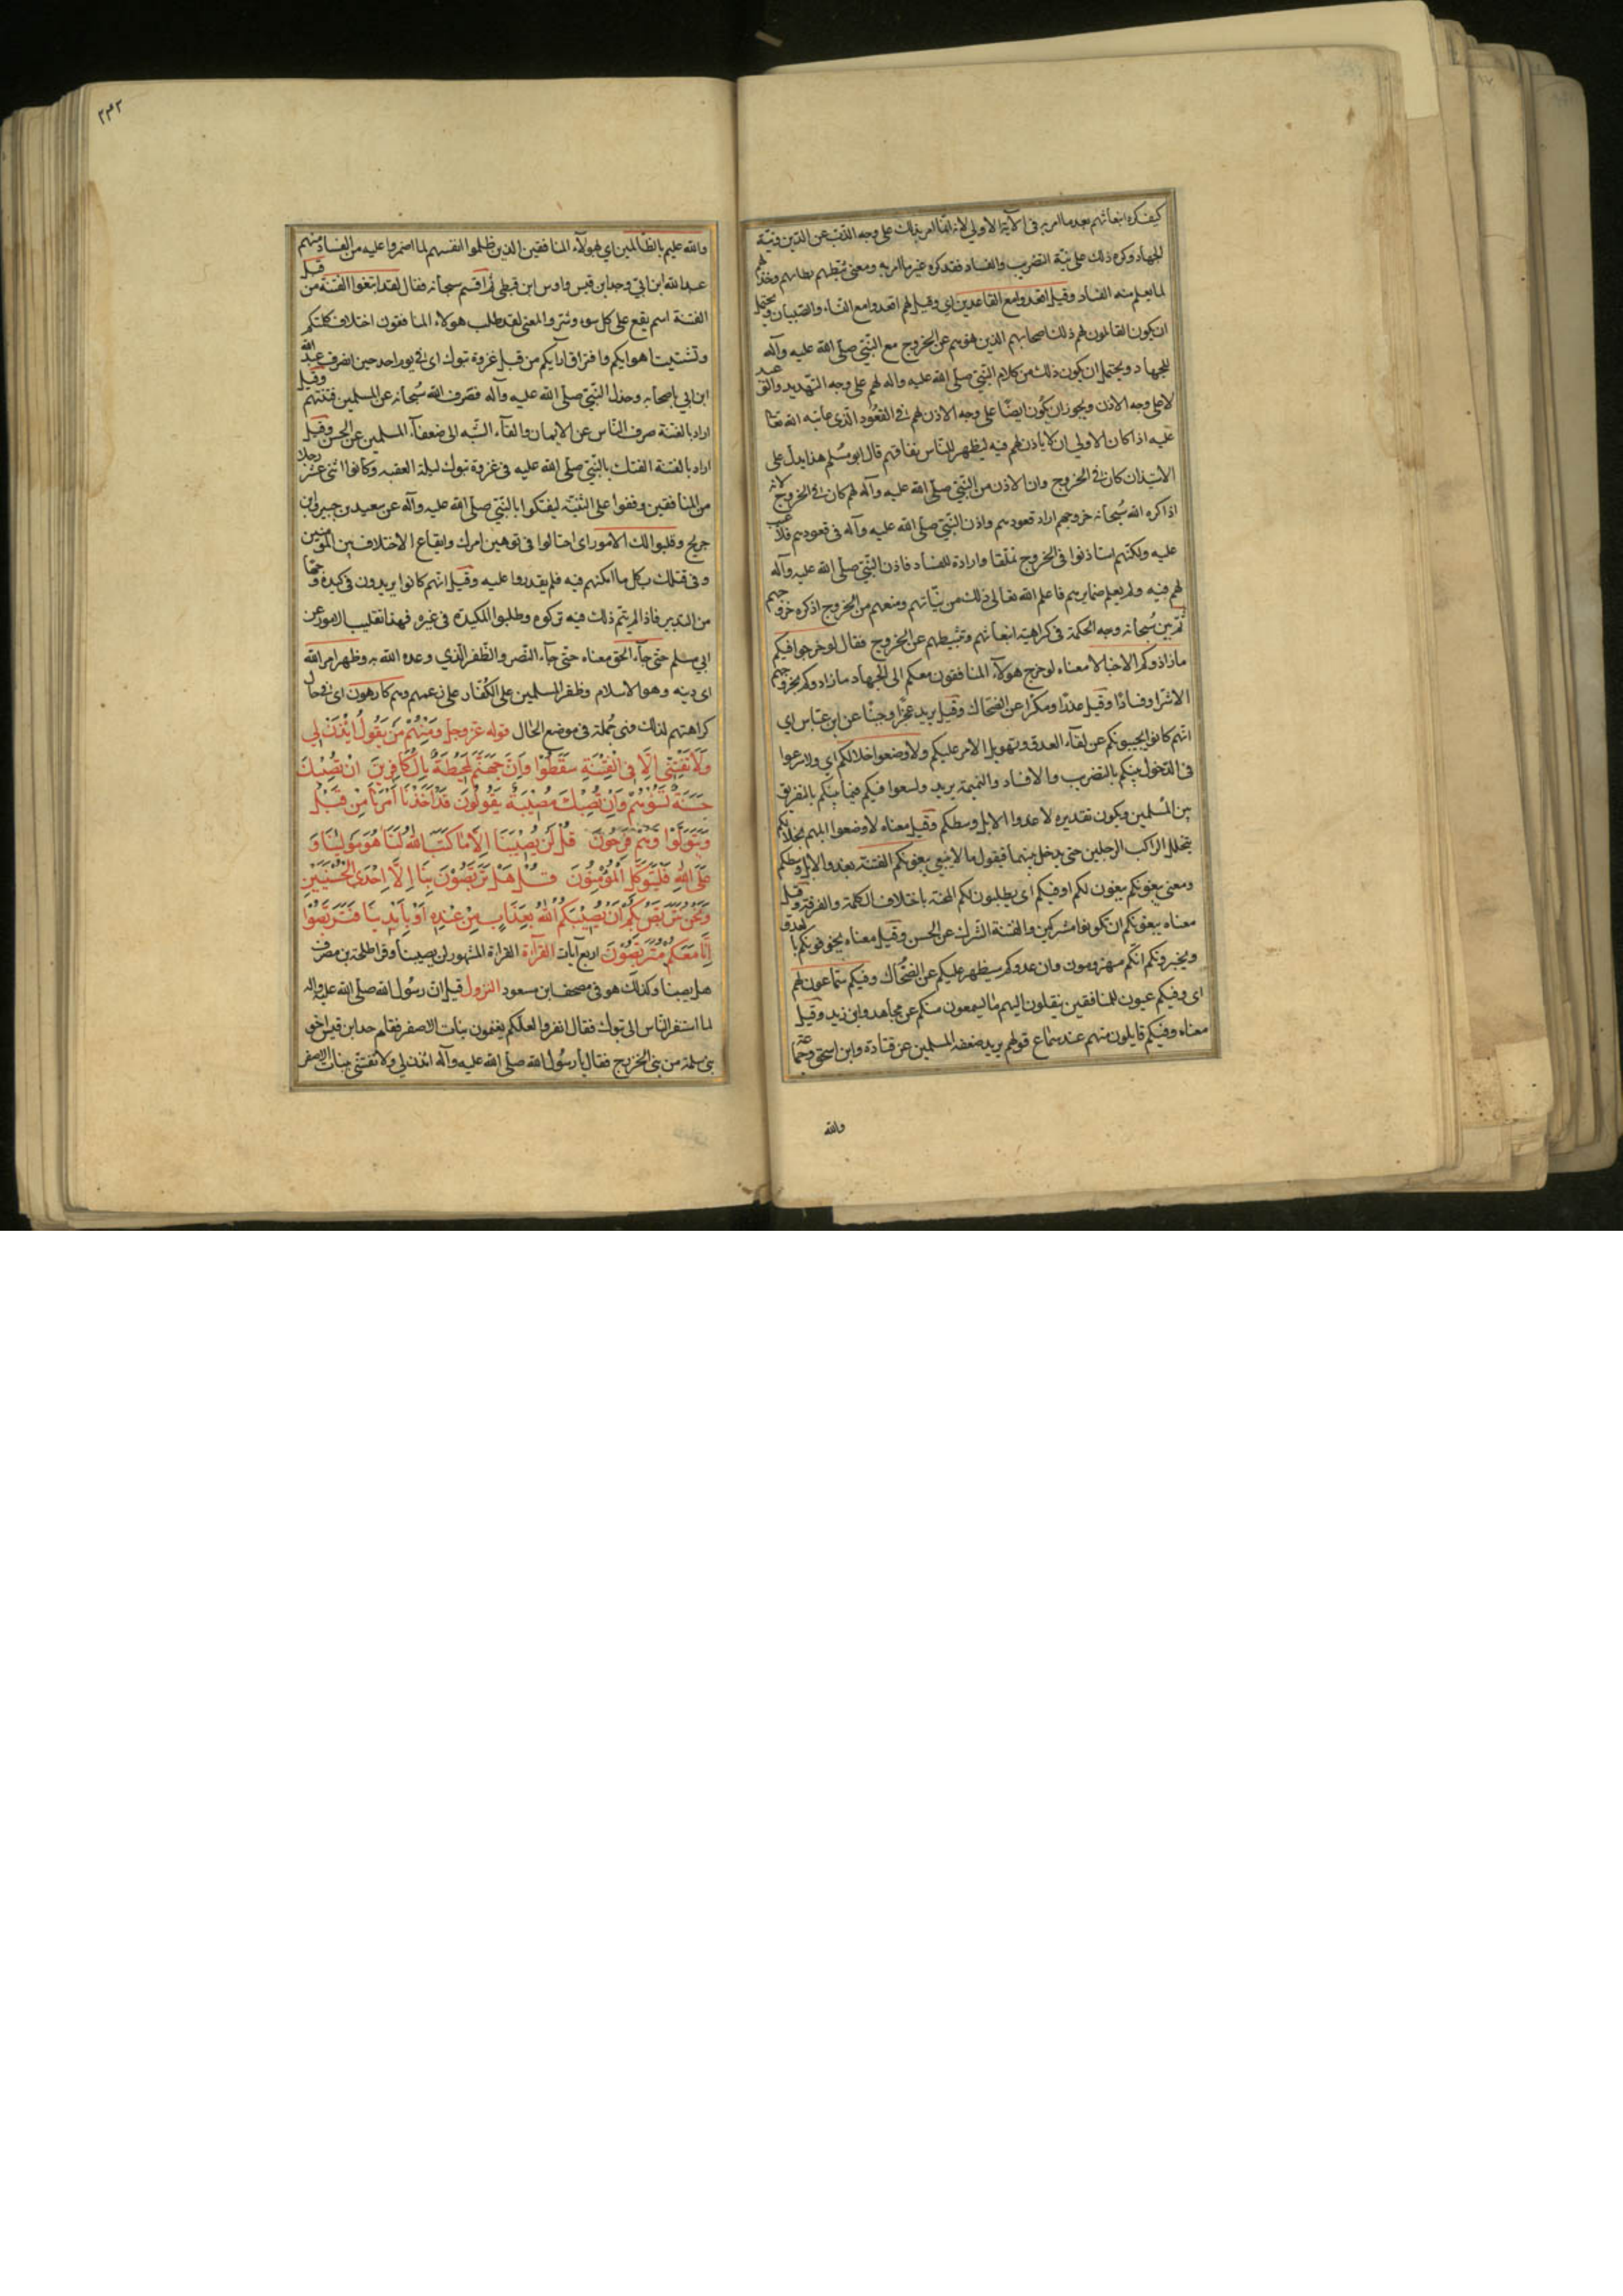 كيف كره انبعاثهم بعد ما امر به فى الآية الاولي لانه انما امر بذلك على وجه الذب عن الدين ونية
الجهاد وكره ذلك على نية التضريب والفساد فقد كره غير ما امر به ومعنى ثبطهم بطابهم وخذلهم
لما يعلم منه الفساد وقيل اقعدوا مع القاعدين اي وقيل لهم اقعدوا مع النساء والصبيان ويحتمل
ان يكون القائلون لهم ذلك اصحابهم الذين نهوهم عن الخروج مع النبي صلى الله عليه وآله
للجهاد ويحتمل ان يكون ذلك من كلام النبي صلى الله عليه وآله لهم على وجه التهديد والوعيد
لا على وجه الاذن ويجوز ان يكون ايضا على وجه الاذن لهم في القعود الذى عاتبه الله تعا
عليه اذا كان الاولى ان لا ياذن لهم فيه ليظهر للناس نفاقهم قال ابو مسلم هذا يدل على
الاستيذان كان في الخروج وان الاذن من النبي صلى الله عليه وآله لهم كان في الخروج لانه
اذا كره الله سبحانه خروجهم اراد قعودهم واذن النبي صلى الله عليه وآله فى قعودهم فلا عتب
عليه ولكنهم استاذنوا فى الخروج تملقا وارادة للفساد فاذن النبي صلى الله عليه وآله
لهم فيه ولم يعلم ضمايرهم فاعلم الله تعالى ذلك من نياتهم ومنعهم من الخروج اذ كره خروجهم
ثم بين سبحانه وجه الحكمة فى كراهية انبعاثهم وتثبيطهم عن الخروج فقال لو خرجوا فيكم
ما زادوكم الا خبالا معناه لو خرج هولآء المنافقون معكم الى الجهاد ما زادوكم بخروجهم
الا شرا وفسادا وقيل غدرا ومكرا عن الضحاك وقيل يريد عجزا وجبنا عن ابن عباس اي
انهم كانوا يجبنونكم عن لقاء العدو وتهويل الامر عليكم ولاوضعوا خلالكم اي ولاسرعوا
فى الدخول بينكم بالتضريب والافساد والنميمة يريد ولسعوا فيكم فيما بينكم بالتفريق
بين المسلمين ويكون تقديره لاعدوا الابل وسطكم وقيل معناه لاوضعوا ابلهم خلالكم
يتخلل الراكب الرجلين حتى يدخل بينهما فيقول ما لا ينبغي يبغونكم الفتنة بعدو الابل وسطكم
ومعنى يبغونكم يبغون لكم او فيكم اى يطلبون لكم المحنة باختلاف الكلمة والفرقة وقيل
معناه يبغونكم ان تكونوا مشركين والفتنة الشرك عن الحسن وقيل معناه يخوفونكم بالعدو
ويخبرونكم انكم مهزومون وان عدوكم سيظهر عليكم عن الضحاك وفيكم سماعون لهم
اى وفيكم عيون للمنافقين ينقلون اليهم ما يسمعون منكم عن مجاهد وابن زيد وقيل
معناه وفيكم قايلون منهم عند سماع قولهم يريد ضعفة المسلمين عن قتادة وابن اسحق وجماعة
والله
٢٣٢
والله عليم بالظالمين اي بهولآء المنافقين الذين ظلموا انفسهم لما اضمروا عليه من الفساد ومنهم
عبد الله ابن ابي وجد ابن قيس واوس ابن قبطي ثم اقسم سبحانه فقال لقد ابتغوا الفتنة من قبل
الفتنة اسم يقع على كل سوء وشر والمعنى لقد طلب هولاء المنافقون اختلاف كلمتكم
وتشتيت اهوايكم وافتراق ارايكم من قبل غزوة تبوك اى في يوم احد حين انصرف عبد الله
ابن ابي باصحابه وخذل النبي صلى الله عليه وآله فصرف الله سبحانه عن المسلمين فتنتهم وقيل
اراد بالفتنة صرف الناس عن الايمان والقآء الشبه الى ضعفآء المسلمين عن الحسن وقيل
اراد بالفتنة الفتك بالنبي صلى الله عليه فى غزوة تبوك ليلة العقبه وكانوا اثنى عشر رجلا
من المنافقين وقفوا على الثنية ليفتكوا بالنبي صلى الله عليه وآله عن سعيد بن جبير وابن
جريح وقلبوا لك الامور اى احتالوا فى توهين امرك وايقاع الاختلاف بين المؤمنين
وفى قتلك بكل ما امكنهم فيه فلم يقدروا عليه وقيل انهم كانوا يريدون فى كيده وجها
من التدبير فاذا لم يتم ذلك فيه تركوه وطلبوا المكيدة فى غيره فهذا تقليب الامور عن
ابي مسلم حتى جآء الحق معناه حتى جآء النصر والظفر الذي وعده الله به وظهر امر الله
اى دينه وهو الاسلام وظفر المسلمين على الكفار على رغمهم وهم كارهون اى في حال
كراهتهم لذلك فهى جملة فى موضع الحال قوله عز وجل وَمِنْهُمْ مَنْ يَقُولُ ائْذَنْ لِي
وَلَا تَفْتِنِّى اَلَا فِى الْفِتْنَةِ سَقَطُوْا وَاِنَّ جَهَنَّمَ لَمُحِيْطَةٌ بِالْكَافِرِيْنَ اِنْ تُصِبْكَ
حَسَنَةٌ تَسُؤْهُمْ وَاِنْ تُصِبْكَ مُصِيْبَةٌ يَقُولُونَ قَدْ اَخَذْنَا اَمْرَنَا مِنْ قَبْلُ
وَيَتَوَلَّوْا وَهُمْ فَرِحُونَ قُلْ لَنْ يُصِيْبَنَا اِلَّا مَا كَتَبَ اللهُ لَنَا هُوَ مَوْلَيْنَا وَ
عَلَى اللهِ فَلْيَتَوَكَّلِ الْمُؤْمِنُونَ قُلْ هَلْ تَرَبَّصُوْنَ بِنَا اِلَّا اِحْدَى الْحُسْنَيَيْنِ
وَنَحْنُ نَتَرَبَّصُ بِكُمْ اَنْ يُصِيْبَكُمُ اللهُ بِعَذَابٍ مِنْ عِنْدِهِ اَوْ بِاَيْدِيْنَا فَتَرَبَّصُوْا
اِنَّا مَعَكُمْ مُتَرَبِّصُوْنَ اربع آيات القرآءة القراءة المشهور لن يصيبنا وقرا طلحة بن مصرف
هل يصبنا وكذلك هو فى مصحف ابن مسعود النزول قيل ان رسول الله صلى الله عليه واله
لما استنفر الناس الى تبوك فقال انفروا لعلكم يغنمون بنات الاصفر فقام جد ابن قيس اخو
بنى سلمة من بنى الخزرج فقال يا رسول الله صلى الله عليه وآله ائذن لي ولا تفتنى ببنات الاصفر